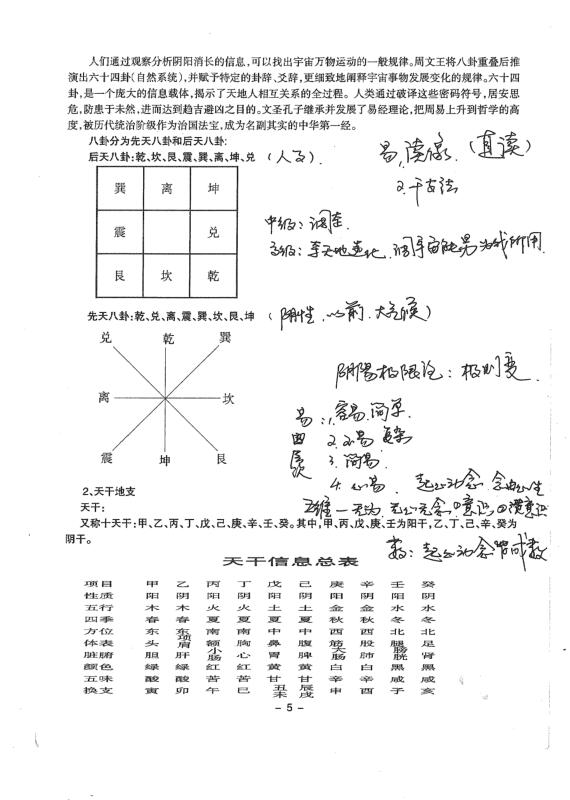 人们通过观察分析阴阳消长的信息,可以找出宇宙万物运动的一般规律。周文王将八卦重叠后推
演出六十四卦(自然系统),并赋予特定的卦辞、爻辞,更细致地阐释宇宙事物发展变化的规律。六十四
卦,是一个庞大的信息载体,揭示了天地人相互关系的全过程。人类通过破译这些密码符号,居安思
危,防患于未然,进而达到趋吉避凶之目的。文圣孔子继承并发展了易经理论,把周易上升到哲学的高
度,被历代统治阶级作为治国法宝,成为名副其实的中华第一经。
八卦分为先天八卦和后天八卦:
后天八卦:乾、坎、艮、震、巽、离、坤、兑
巽 离 坤
震 兑
艮 坎 乾
中级:调整
先天八卦:乾、兑、离、震、巽、坎、艮、坤
(阴性、以前、大气候)
兑 乾 巽
离 坎
震 坤 艮
阴阳极限论:极则变
易:1.容易、简单
2.不易 复杂
3.简易
4.心易
2、天干地支
天干:
又称十天干:甲、乙、丙、丁、戊、己、庚、辛、壬、癸。其中,甲、丙、戊、庚、壬为阳干,乙、丁、己、辛、癸为
阴干。
天干信息总表
项目 甲 乙 丙 丁 戊 己 庚 辛 壬 癸
性质 阳 阴 阳 阴 阳 阴 阳 阴 阳 阴
五行 木 木 火 火 土 土 金 金 水 水
四季 春 春 夏 夏 夏 夏 秋 秋 冬 冬
方位 东 东 南 南 中 中 西 西 北 北
体表 头 项肩 额 胸 鼻 腹 筋 股 腿 足
脏腑 胆 肝 小肠 心 胃 脾 大肠 肺 膀胱 肾
颜色 绿 绿 红 红 黄 黄 白 白 黑 黑
五味 酸 酸 苦 苦 甘 甘 辛 辛 咸 咸
换支 寅 卯 午 巳 丑未 辰戌 申 酉 子 亥
- 5 -